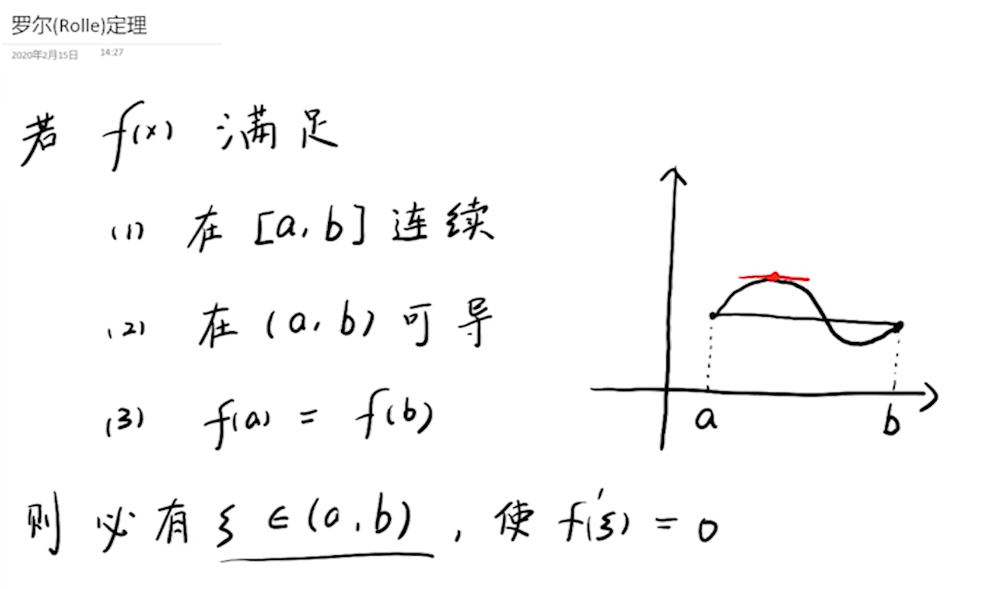 罗尔(Rolle)定理
2020年2月15日 14:27
若 f(x) 满足
(1) 在 [a, b] 连续
(2) 在 (a, b) 可导
(3) f(a) = f(b)
a b
则必有 ξ ∈ (a, b) , 使 f'(ξ) = 0